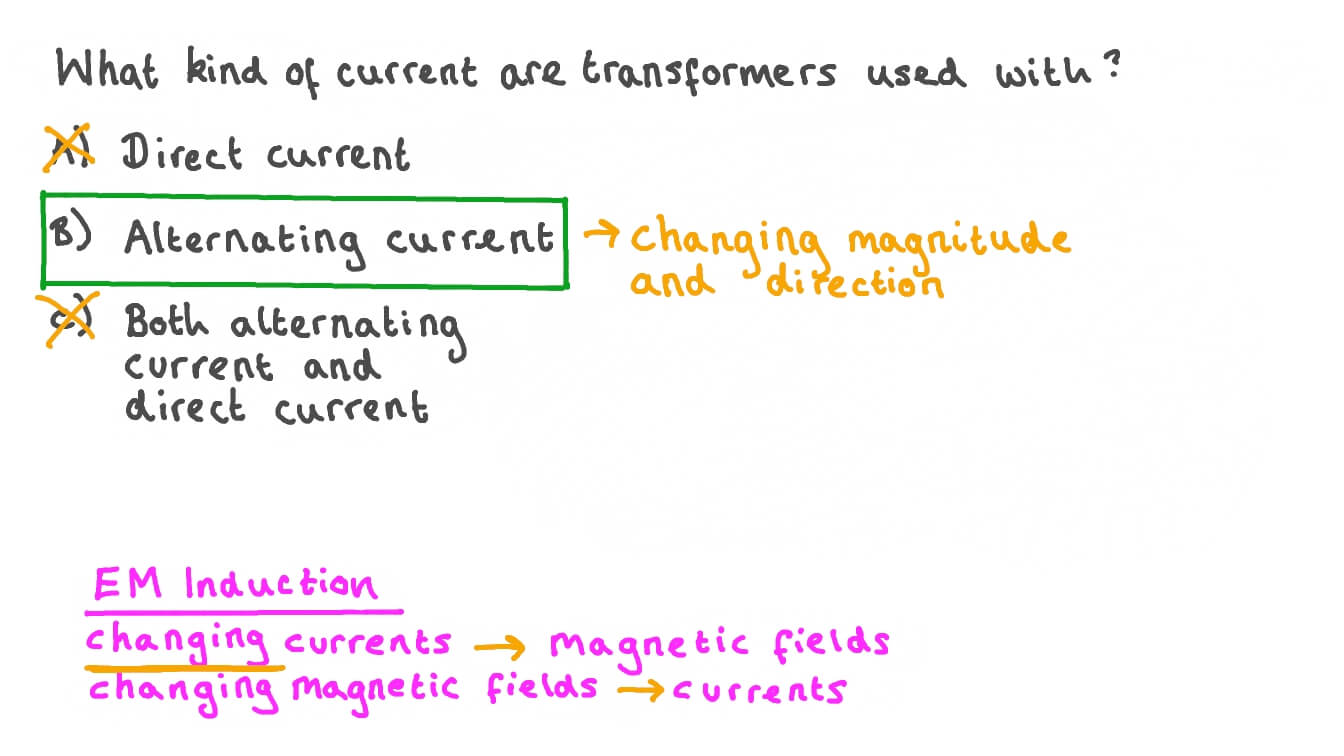 What kind of current are transformers used with?
A) Direct current
B) Alternating current → changing magnitude
and direction
C) Both alternating
current and
direct current
EM Induction
changing currents → magnetic fields
changing magnetic fields → currents